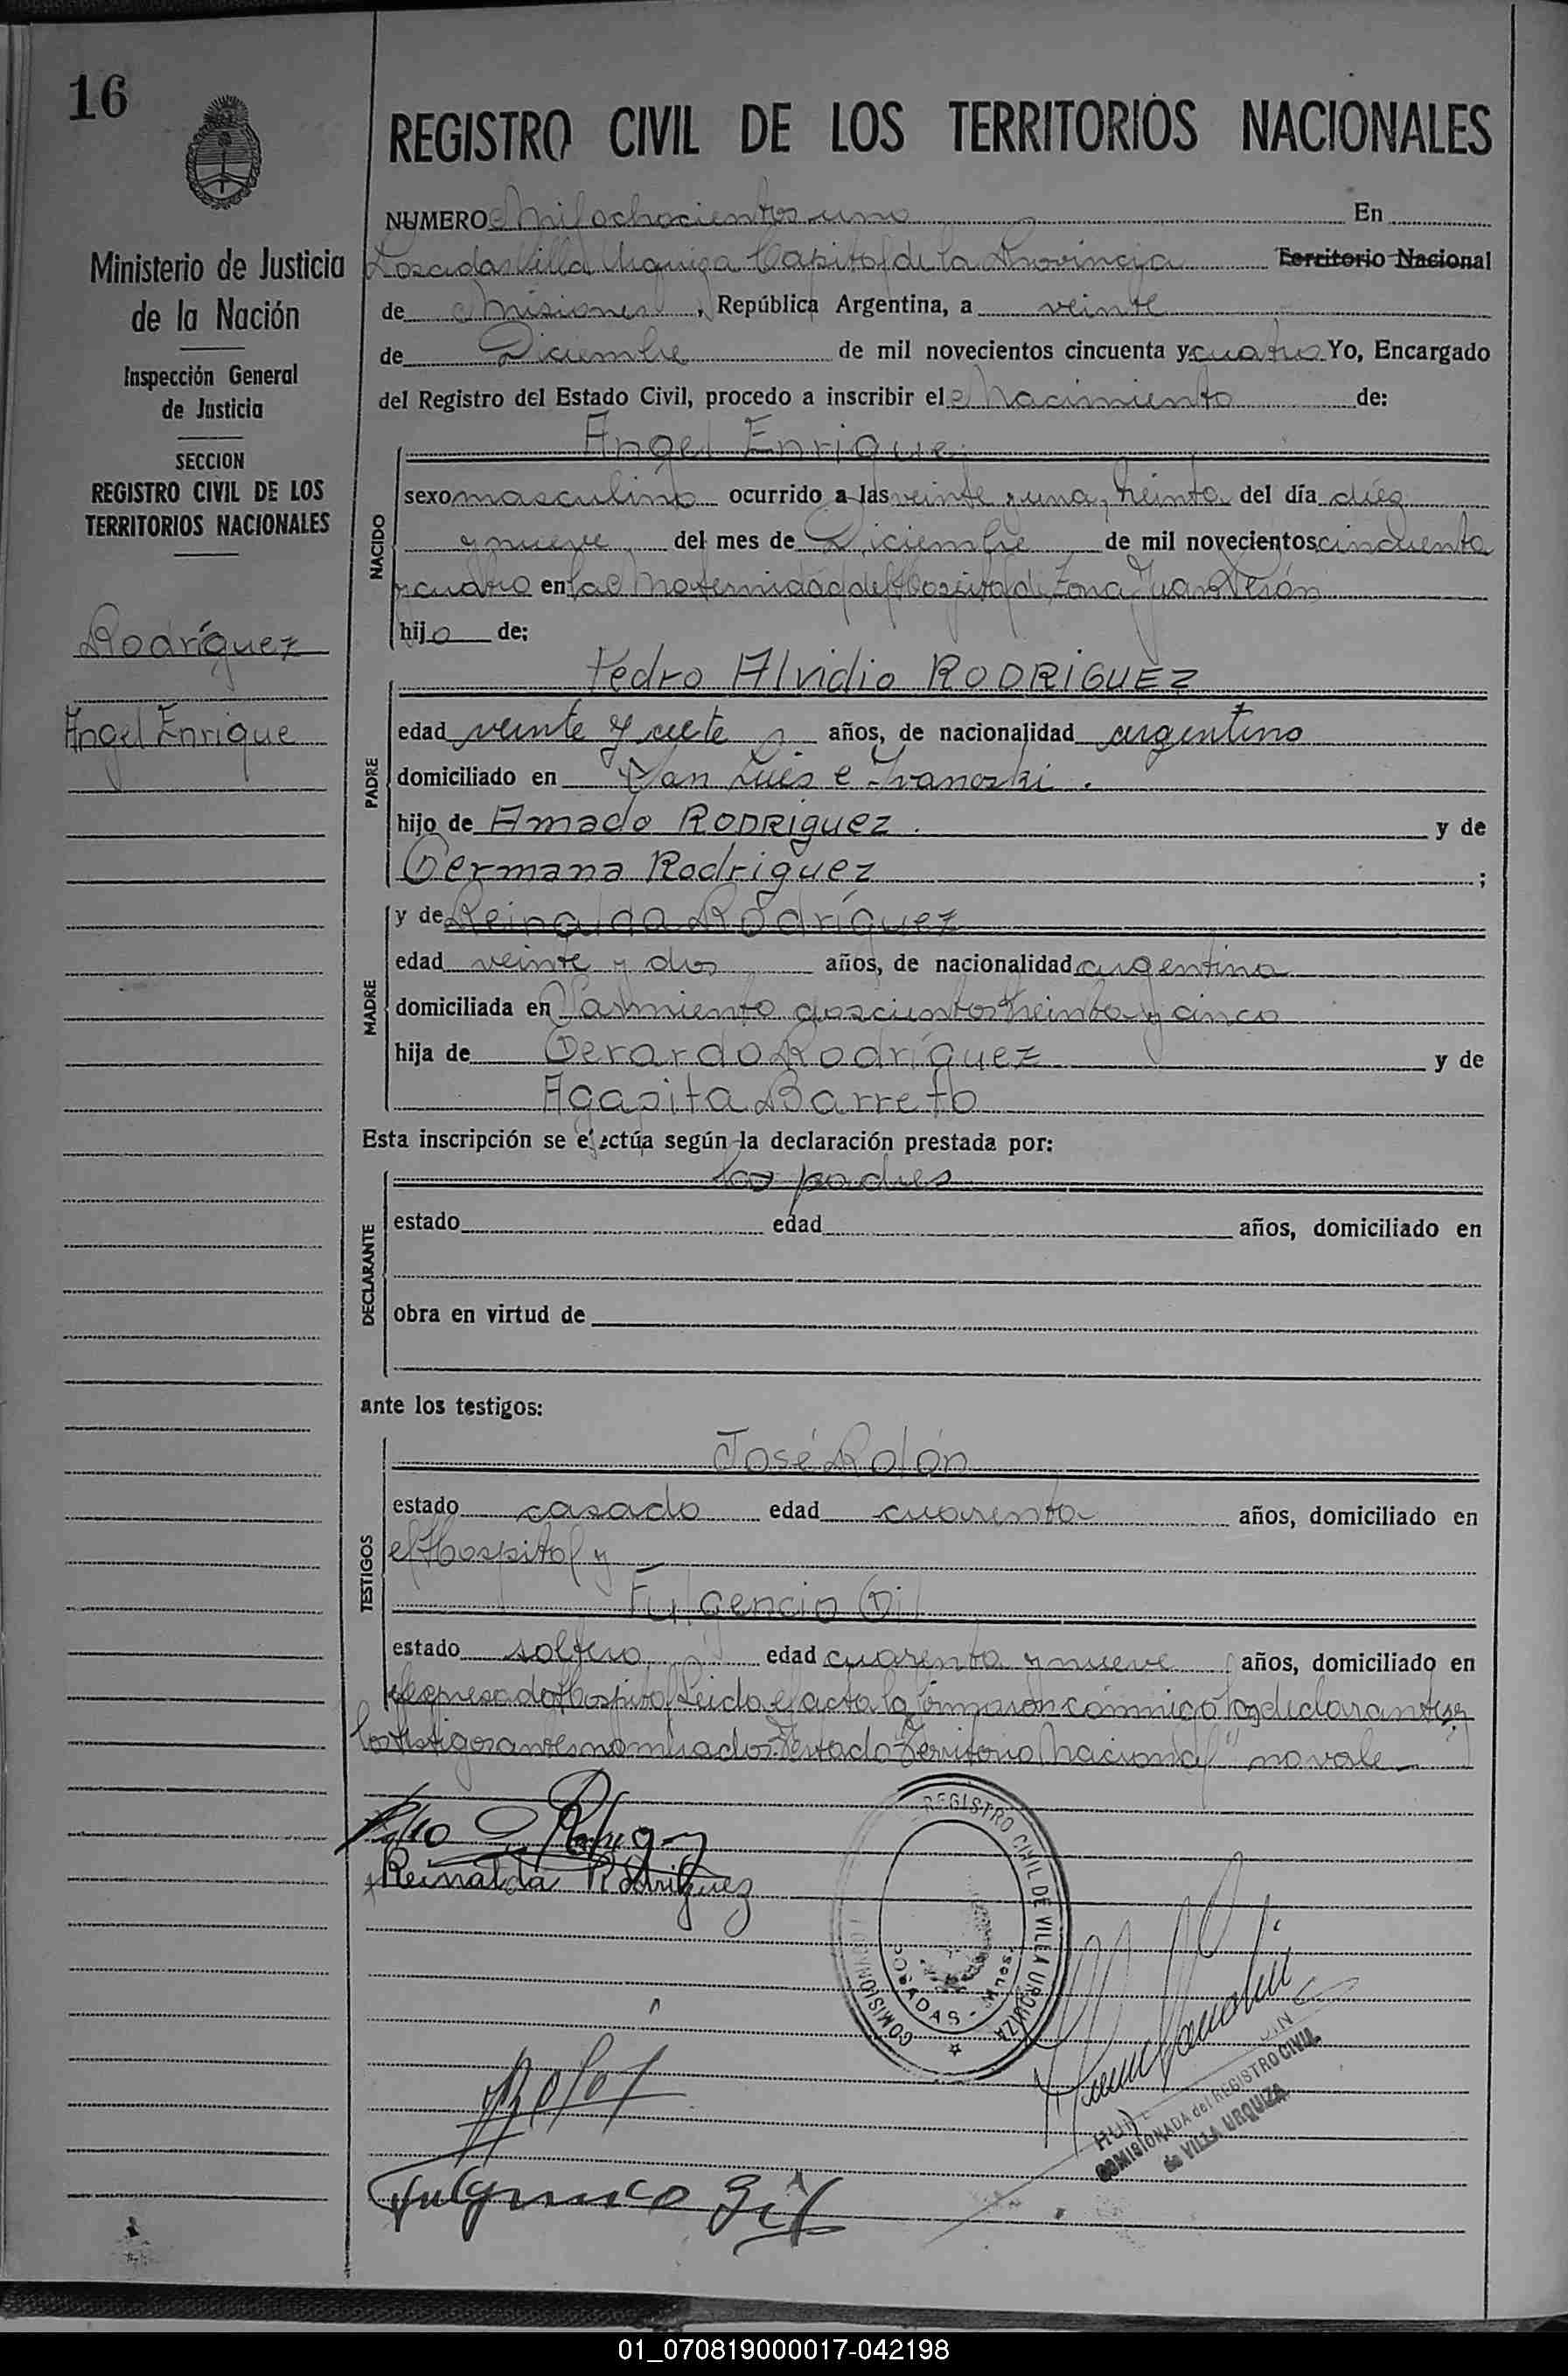 16
REGISTRO CIVIL DE LOS TERRITORIOS NACIONALES
Ministerio de Justicia
de la Nación
Inspección General
de Justicia
SECCION
REGISTRO CIVIL DE LOS
TERRITORIOS NACIONALES
Rodríguez
Angel Enrique
NUMERO Mil ochocientos uno En
Posadas Villa Urquiza Capital de la Provincia Territorio Nacional
de Misiones, República Argentina, a veinte
de Diciembre de mil novecientos cincuenta y cuatro Yo, Encargado
del Registro del Estado Civil, procedo a inscribir el Nacimiento de:
NACIDO
Angel Enrique
sexo masculino ocurrido a las veinte y una y treinta del día diez
y nueve del mes de Diciembre de mil novecientos cincuenta
y cuatro en la Maternidad del Hospital de Zona Juan Perón
hijo de:
PADRE
Pedro Alvidio RODRIGUEZ
edad veinte y siete años, de nacionalidad argentino
domiciliado en San Luis e Ivanoski.
hijo de Amado RODRIGUEZ. y de
Germana Rodriguez ;
MADRE
y de Reinalda Rodríguez
edad veinte y dos años, de nacionalidad argentina
domiciliada en Sarmiento doscientos treinta y cinco
hija de Gerardo Rodríguez y de
Agapita Barreto
Esta inscripción se efectúa según la declaración prestada por:
DECLARANTE
los padres
estado edad años, domiciliado en
obra en virtud de
ante los testigos:
TESTIGOS
José Rolón
estado casado edad cuarenta años, domiciliado en
el Hospital y
Fulgencio Gil
estado soltero edad cuarenta y nueve años, domiciliado en
el expresado Hospital Leida el acta la firmaron conmigo los declarantes y
los testigos antes nombrados. Testado "Territorio Nacional" no vale
Reinalda Rodriguez
REGISTRO CIVIL DE VILLA URQUIZA
POSADAS - Mnes.
Fulgencio Gil
COMISIONADA del REGISTRO CIVIL
de VILLA URQUIZA
01_070819000017-042198